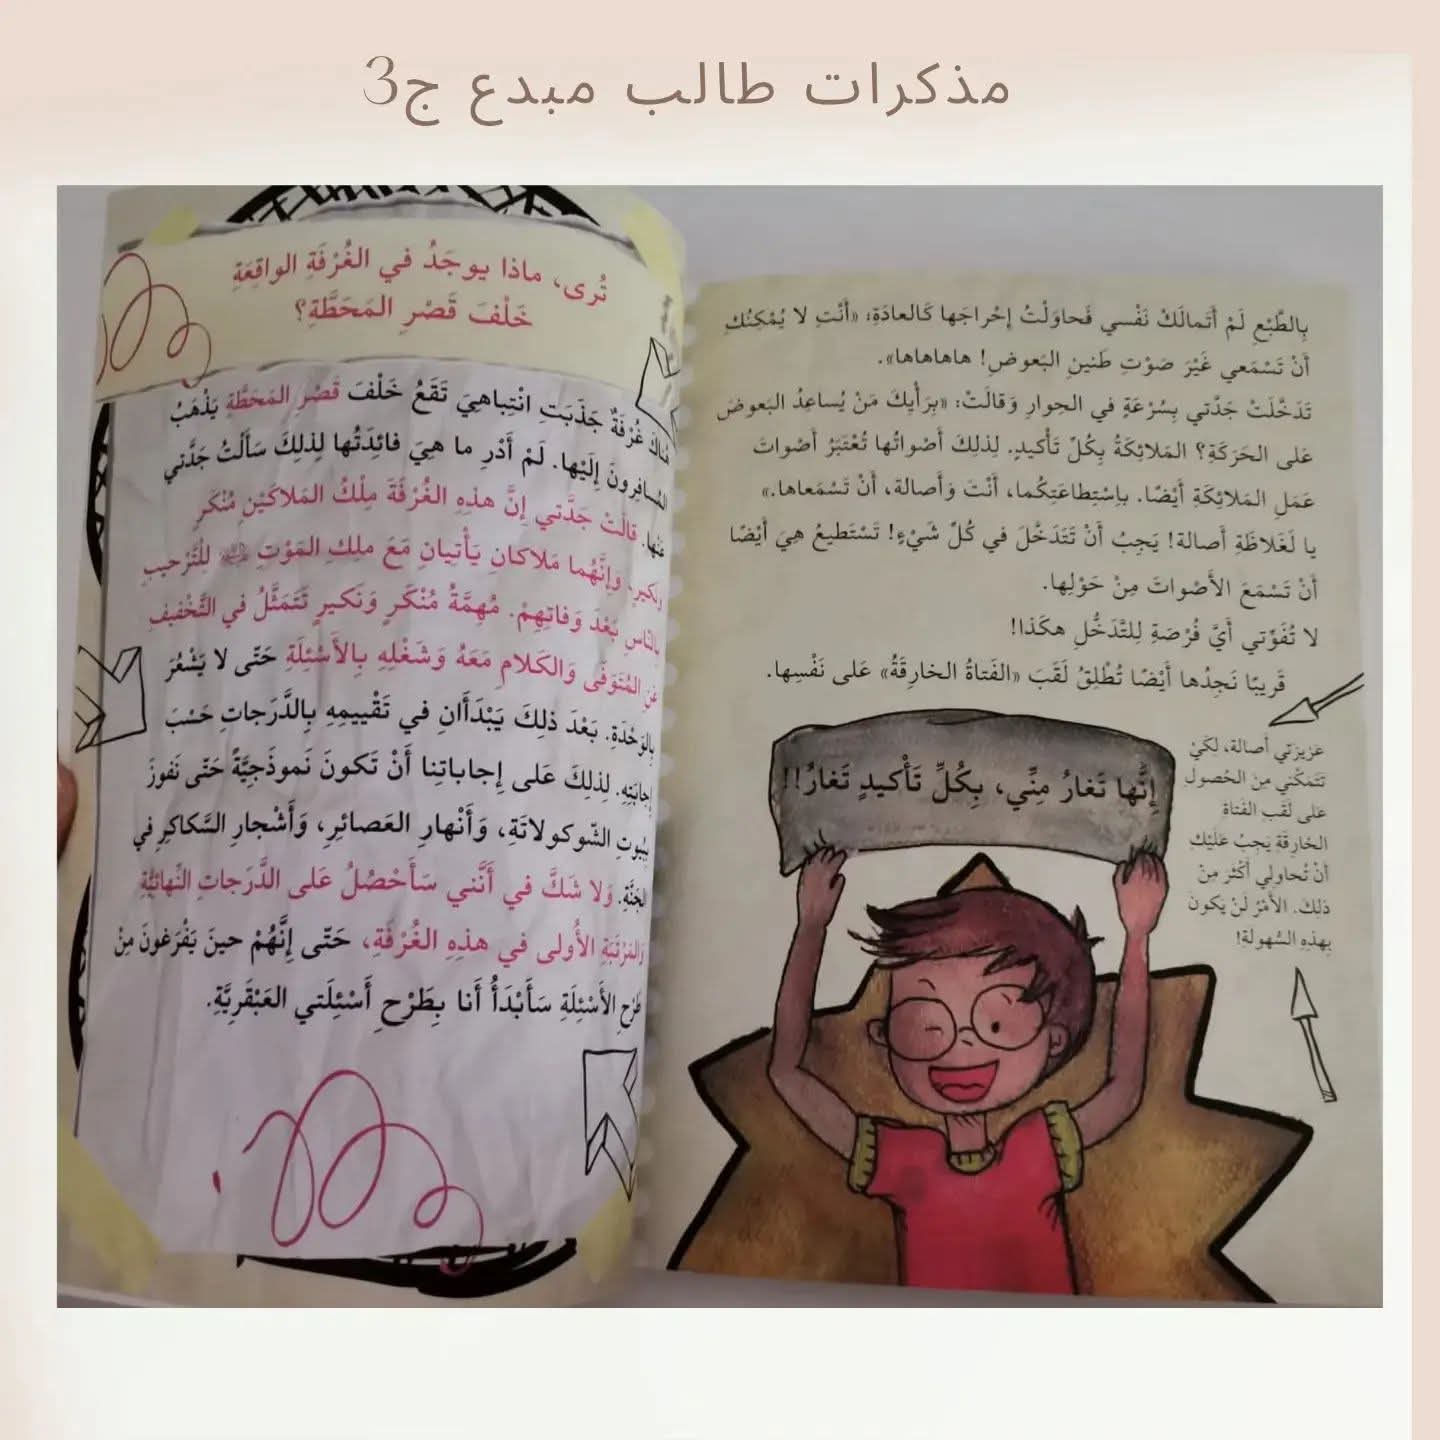 مذكرات طالب مبدع ج3
بِالطَّبْعِ لَمْ أَتَمالَكْ نَفْسي فَحاوَلْتُ إِحْراجَها كَالعادَةِ: «أَنْتِ لا يُمْكِنُكِ
أَنْ تَسْمَعي غَيْرَ صَوْتِ طَنينِ البَعوضِ! هاهاهاها».
تَدَخَّلَتْ جَدَّتي بِسُرْعَةٍ في الحِوارِ وَقالَتْ: «بِرَأْيِكَ مَنْ يُساعِدُ البَعوضَ
عَلى الحَرَكَةِ؟ المَلائِكَةُ بِكُلِّ تَأْكيدٍ. لِذلِكَ أَصْواتُها تُعْتَبَرُ أَصْواتَ
عَمَلِ المَلائِكَةِ أَيْضًا. بِاسْتِطاعَتِكُما، أَنْتَ وَأَصالة، أَنْ تَسْمَعاها.»
يا لَغَلاظَةِ أَصالة! يَجِبُ أَنْ تَتَدَخَّلَ في كُلِّ شَيْءٍ! تَسْتَطيعُ هِيَ أَيْضًا
أَنْ تَسْمَعَ الأَصْواتَ مِنْ حَوْلِها.
لا تُفَوِّتي أَيَّ فُرْصَةٍ لِلتَّدَخُّلِ هكَذا!
قَريبًا نَجِدُها أَيْضًا تُطْلِقُ لَقَبَ «الفَتاةُ الخارِقَةُ» عَلى نَفْسِها.
عَزيزَتي أَصالة، لِكَيْ
تَتَمَكَّني مِنَ الحُصولِ
عَلى لَقَبِ الفَتاة
الخارِقَةِ يَجِبُ عَلَيْكِ
أَنْ تُحاوِلي أَكْثَرَ مِنْ
ذلِكَ. الأَمْرُ لَنْ يَكونَ
بِهذِهِ السُّهولة!
إِنَّها تَغارُ مِنِّي، بِكُلِّ تَأْكيدٍ تَغارُ!!
تُرى، ماذا يوجَدُ في الغُرْفَةِ الواقِعَةِ
خَلْفَ قَصْرِ المَحَطَّةِ؟
هُناكَ غُرْفَةٌ جَذَبَتِ انْتِباهِيَ تَقَعُ خَلْفَ قَصْرِ المَحَطَّةِ يَذْهَبُ
المُسافِرونَ إِلَيْها. لَمْ أَدْرِ ما هِيَ فائِدَتُها لِذلِكَ سَأَلْتُ جَدَّتي
عَنْها. قالَتْ جَدَّتي إِنَّ هذِهِ الغُرْفَةَ مِلْكُ المَلاكَيْنِ مُنْكَرٍ
وَنَكيرٍ، وَإِنَّهُما مَلاكانِ يَأْتِيانِ مَعَ ملِكِ المَوْتِ لِلتَّرْحيبِ
بِالنّاسِ بَعْدَ وَفاتِهِمْ. مُهِمَّةُ مُنْكَرٍ وَنَكيرٍ تَتَمَثَّلُ في التَّخْفيفِ
عَنِ المُتَوَفّى وَالكَلامِ مَعَهُ وَشَغْلِهِ بِالأَسْئِلَةِ حَتّى لا يَشْعُرَ
بِالوَحْدَةِ. بَعْدَ ذلِكَ يَبْدَأانِ في تَقْييمِهِ بِالدَّرَجاتِ حَسْبَ
إِجابَتِهِ. لِذلِكَ عَلى إِجاباتِنا أَنْ تَكونَ نَموذَجِيَّةً حَتّى نَفوزَ
بِبُيوتِ الشّوكولاتَةِ، وَأَنْهارِ العَصائِرِ، وَأَشْجارِ السَّكاكِرِ في
الجَنَّةِ. وَلا شَكَّ في أَنَّني سَأَحْصُلُ عَلى الدَّرَجاتِ النِّهائِيَّةِ
وَالمَرْتَبَةِ الأُولى في هذِهِ الغُرْفَةِ، حَتّى إِنَّهُمْ حينَ يَفْرَغونَ مِنْ
طَرْحِ الأَسْئِلَةِ سَأَبْدَأُ أَنا بِطَرْحِ أَسْئِلَتي العَبْقَرِيَّةِ.